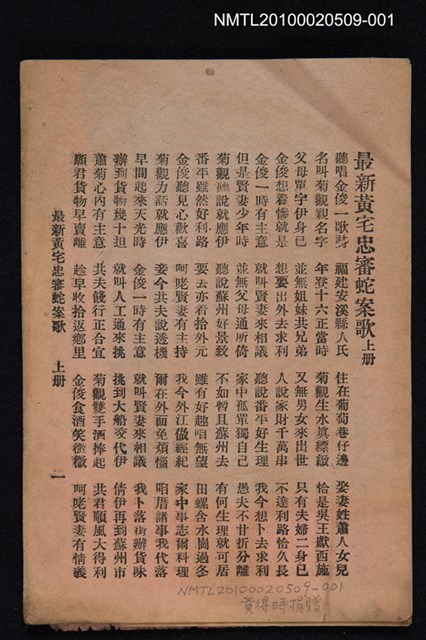 NMTL20100020509-001
最新黃宅忠審蛇案歌 上册
聽唱金俊一歌詩 福建安溪縣人氏 住在葡萄巷仔邊 娶妻姓蕭人女兒
名叫菊觀親名字 年登十六正當時 菊觀生水真縹緻 恰是吳王獻西施
父母單字伊身已 並無姐妹共兄弟 又無男女來出世 只有夫婦二身已
金俊想着慘就是 想要出外去求利 人說家財千萬串 不達利路恰久長
金俊一時有主意 就叫賢妻來相議 聽說番平好生理 我今想卜去求利
但是賢妻少年時 並無父母通所倚 家中孤單獨自己 愚夫不甘折分離
菊觀聽說就應伊 聽說蘇州好景致 不如暫且蘇州去 有何生理就可居
番平雖然好利路 要去亦着拾外元 雖有好趣咱無望 田螺含水崗過冬
金俊聽見心歡喜 呵咾賢妻有主持 我今外江做經紀 家中事志爾料理
菊觀力話就應伊 妾今共夫說透機 爾在外面免煩惱 咱厝諸事我代落
早間起來天光時 金俊一時有主意 就叫賢妻來相議 我卜落街辦貨味
辦到貨物幾十担 就叫人工通來挑 挑到大船交代伊 倩伊再到蘇州市
蕭菊心內有主意 共夫餞行正合宜 菊觀雙手酒捧起 共君順風大得利
願君貨物早賣離 趁早收拾返鄉里 金俊食酒笑微微 呵咾賢妻有情義
最新黃宅忠審蛇案歌 上册 一
NMTL20100020509-001
黃得時捐贈